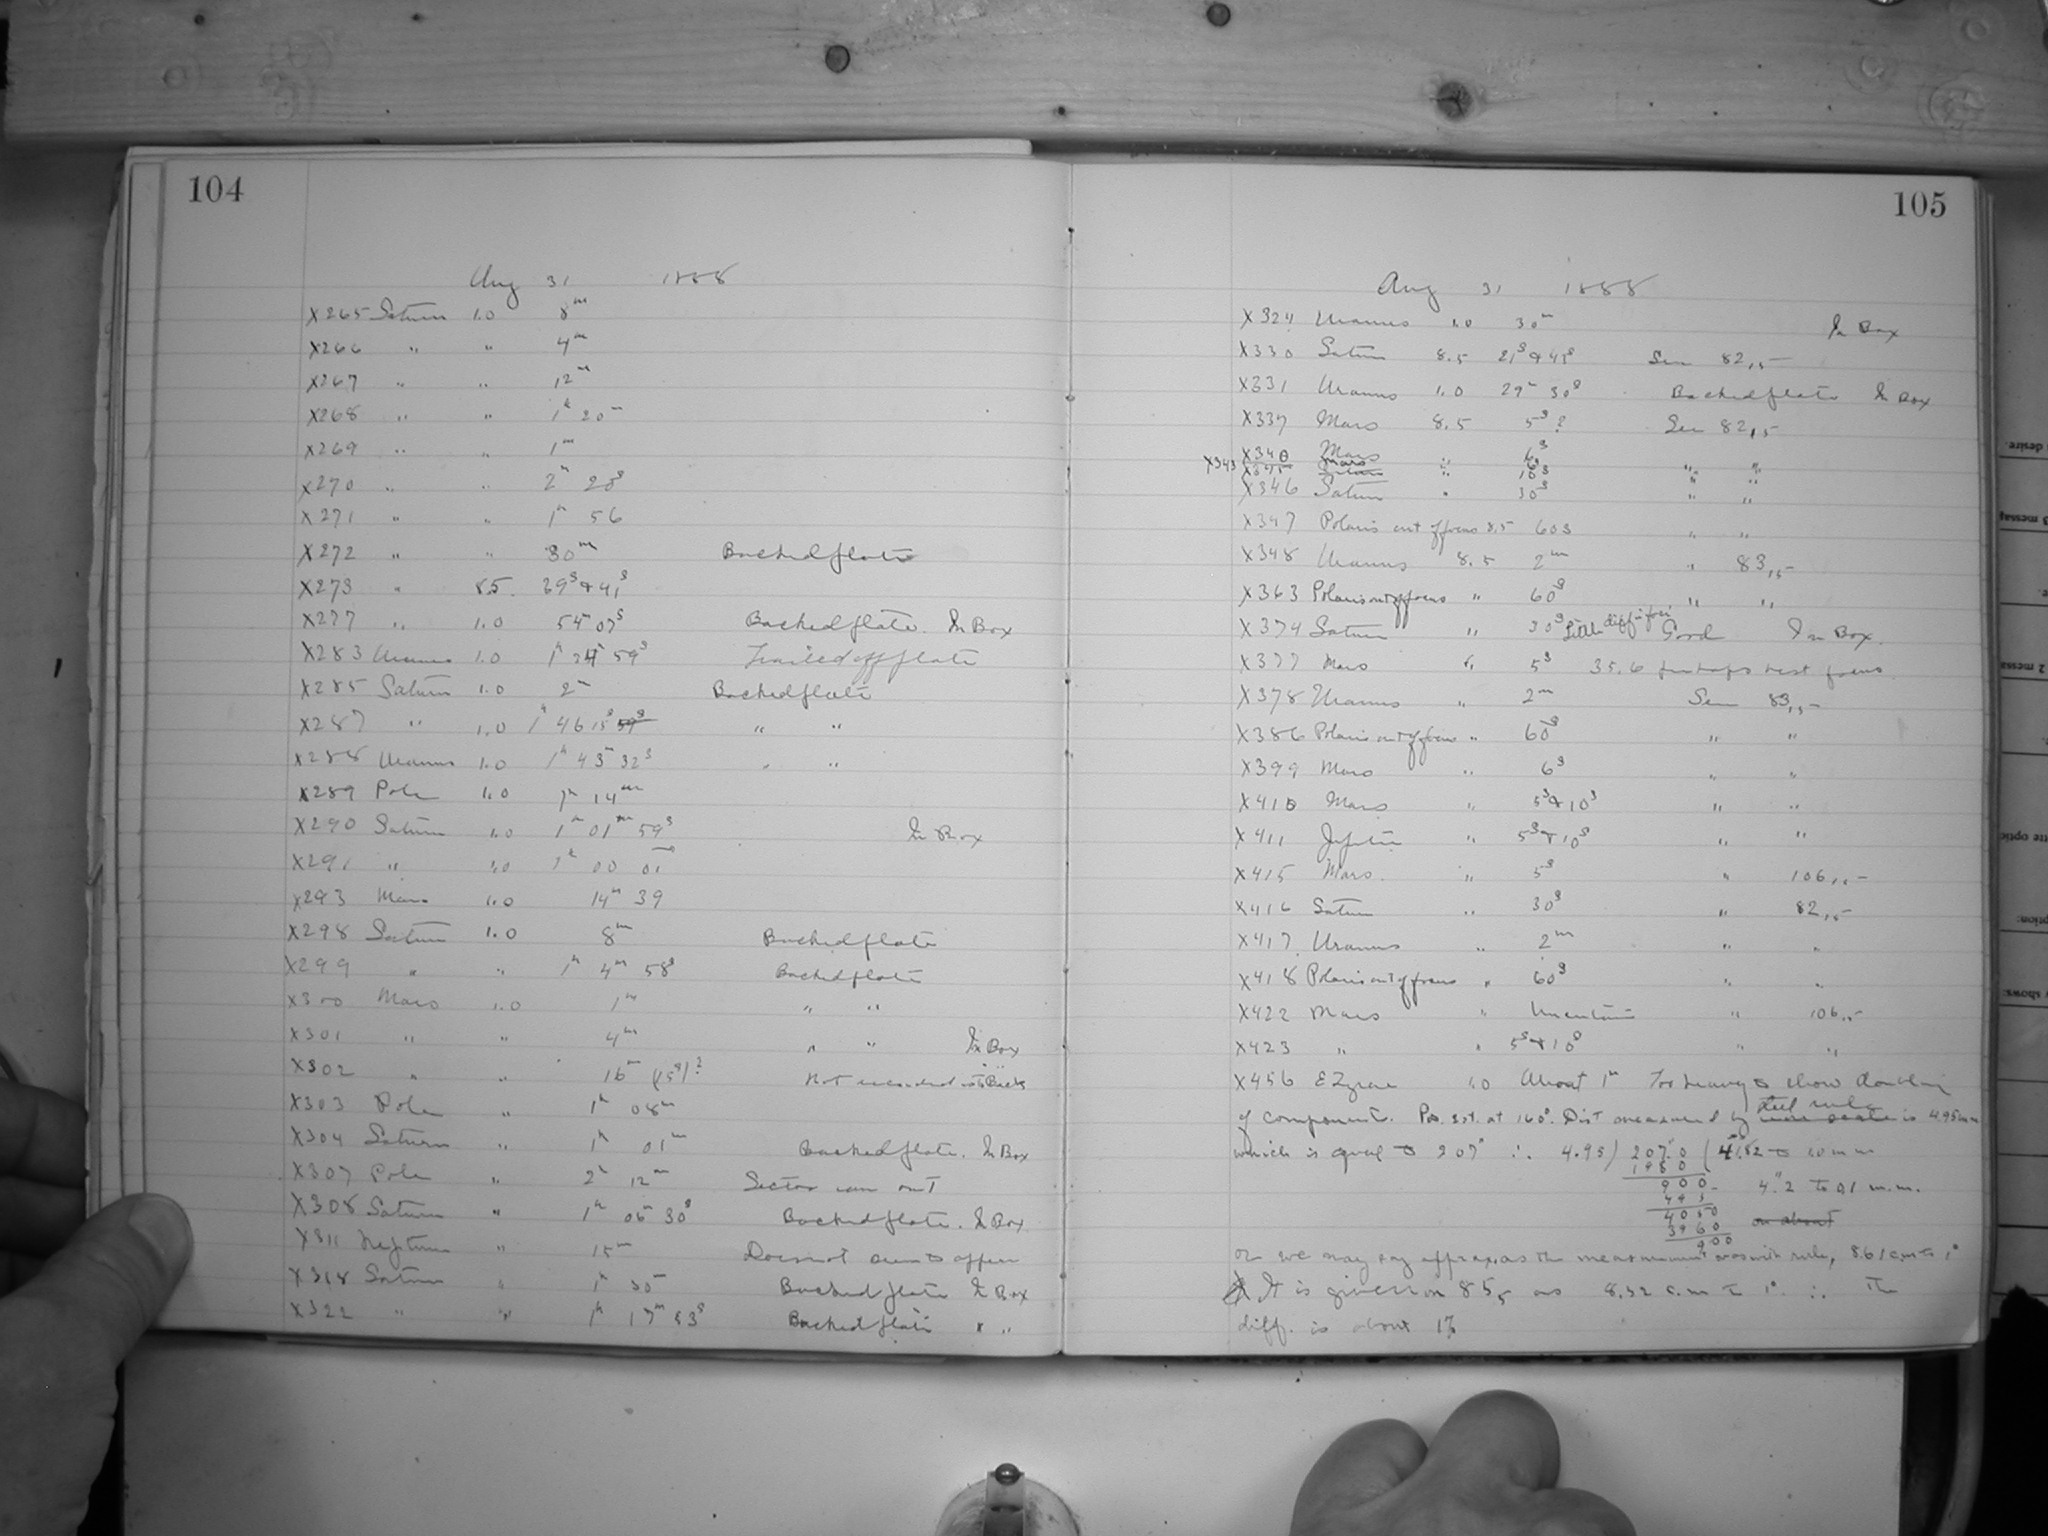 104
Aug 31 1888
X265 Saturn 1.0 8m
X266 " " 4m
X267 " " 12m
X268 " " 1h 20m
X269 " " 1m
X270 " " 2m 28s
X271 " " 1h 56
X272 " " 30m Backed plate
X273 " 8.5 39s & 41s
X277 " 1.0 54m 07s Backed plate. In Box
X283 Uranus 1.0 1h 24m 59s Trailed off plate
X285 Saturn 1.0 2m Backed plate
X287 " 1.0 1h 46 15s " "
X288 Uranus 1.0 1h 43m 32s " "
X289 Pole 1.0 1h 14m
X290 Saturn 1.0 1h 01m 59s In Box
X291 " 1.0 1h 00 01
X293 Mars 1.0 14m 39
X298 Saturn 1.0 8m Backed plate
X299 " " 1h 4m 58s Backed plate
X300 Mars 1.0 1m " "
X301 " " 4m " " In Box
X302 " " 16m (15s)? Not recorded
X303 Pole " 1h 08m
X304 Saturn " 1h 01m Backed plate. In Box
X307 Pole " 2h 12m Sector ran out
X308 Saturn " 1h 06m 30s Backed plate. In Box
X311 Neptune " 15m Does not seem to appear
X318 Saturn " 1h 30m Backed plate In Box
X322 " " 1h 17m 53s Backed plate " "
105
Aug 31 1888
X324 Uranus 1.0 30m In Box
X330 Saturn 8.5 21s & 41s See 82,5
X331 Uranus 1.0 29m 30s Backed plate In Box
X337 Mars 8.5 5s? See 82,5
X340 Mars " 6s " "
X343 Mars " 10s " "
X346 Saturn " 30s " "
X347 Polaris out of focus 8.5 60s " "
X348 Uranus 8.5 2m " 83,5
X363 Polaris out of focus " 60s " "
X374 Saturn " 30s Little diff. in foci Good In Box.
X377 Mars " 5s 35.6 perhaps best focus
X378 Uranus " 2m See 83,5
X386 Polaris out of focus " 60s " "
X399 Mars " 6s " "
X410 Mars " 5s & 10s " "
X411 Jupiter " 5s & 10s " "
X415 Mars. " 5s " 106,5
X416 Saturn " 30s " 82,5
X417 Uranus " 2m " "
X418 Polaris out of focus " 60s " "
X422 Mars " Uncertain " 106,5
X423 " " 5s & 10s " "
X456 1.0 About 1h Too heavy to show doubling
of component. Pos. est. at 160°. Dist measured by steel rule is 4.95 mm
which is equal to 207" ∴ 4.95) 207.0 (41.82 to 10 mm
1980
900 4".2 to 0.1 m.m.
495
4050 or about
3960
900
or we may say approx. as the measurement was with rule, 8.61 cm to 1°
It is given on 85,5 as 8.52 c.m to 1°. ∴ The
diff. is about 1%